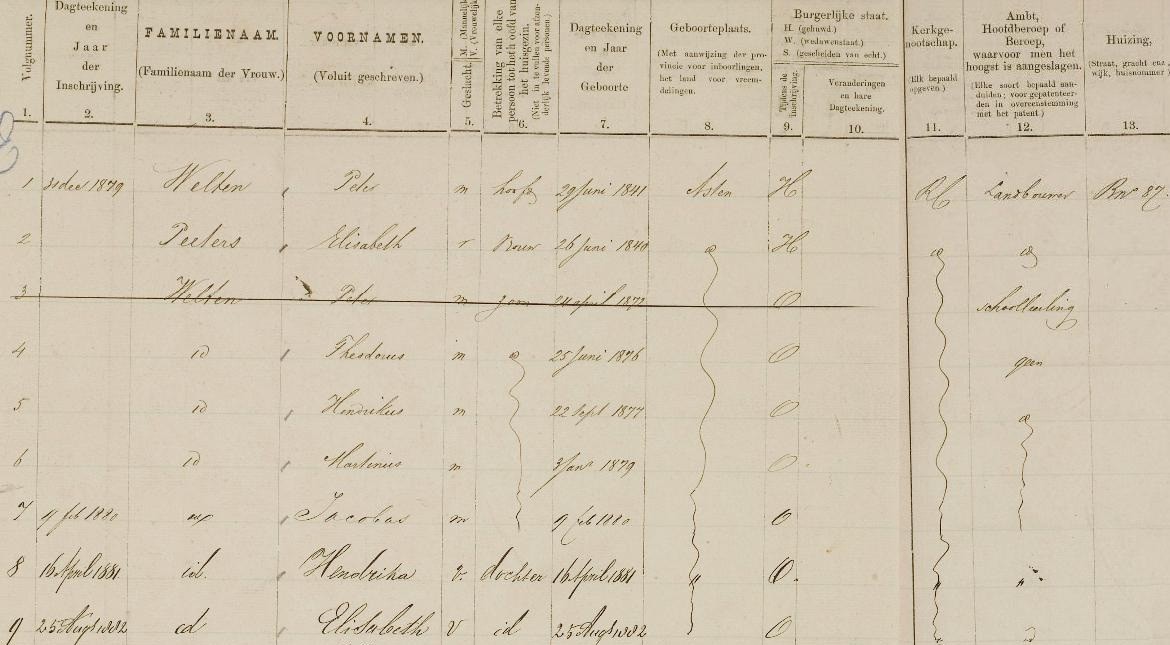 Volgnummer.
Dagteekening
en
Jaar
der
Inschrijving.
FAMILIENAAM.
(Familienaam der Vrouw.)
VOORNAMEN.
(Voluit geschreven.)
Geslacht, M. (Mannelijk) V. (Vrouwelijk)
Betrekking van elke
persoon tot het hoofd van
het huisgezin.
Dagteekening
en Jaar
der
Geboorte
Geboorteplaats.
(Met aanwijzing der pro-
vincie voor inboorlingen,
het land voor vreem-
delingen.
Burgerlijke staat.
H. (gehuwd.)
W. (weduwenstaat.)
S. (gescheiden van echt.)
Tijdens de
inschrijving.
Veranderingen
en hare
Dagteekening.
Kerkge-
nootschap.
(Elk bepaald
opgeven.)
Ambt,
Hoofdberoep of
Beroep,
waarvoor men het
hoogst is aangeslagen.
(Elke soort bepaald aan-
duiden; voor gepatenteer-
den in overeenstemming
met het patent.)
Huizing,
(Straat, gracht enz.,
wijk, huisnommer
1. 2. 3. 4. 5. 6. 7. 8. 9. 10. 11. 12. 13.
1 31 dec 1879 Welten Peter m hoofd 29 Juni 1841 Asten H RC Landbouwer Bn 87.
2 Peeters Elisabeth v vrouw 26 Juni 1840 H
3 Welten Peter m zoon 24 april 1872 O schoolleerling
4 id Theodorus m 25 Juni 1876 O geen
5 id Hendrikus m 22 Sept 1877 O
6 id Martinus m 3 Janr 1879 O
7 9 feb 1880 Jacobus m 9 feb 1880 O
8 16 April 1881 id. Hendrika v. dochter 16 April 1881 " O. " "
9 25 Augs 1882 id Elisabeth V id 25 Augs 1882 O